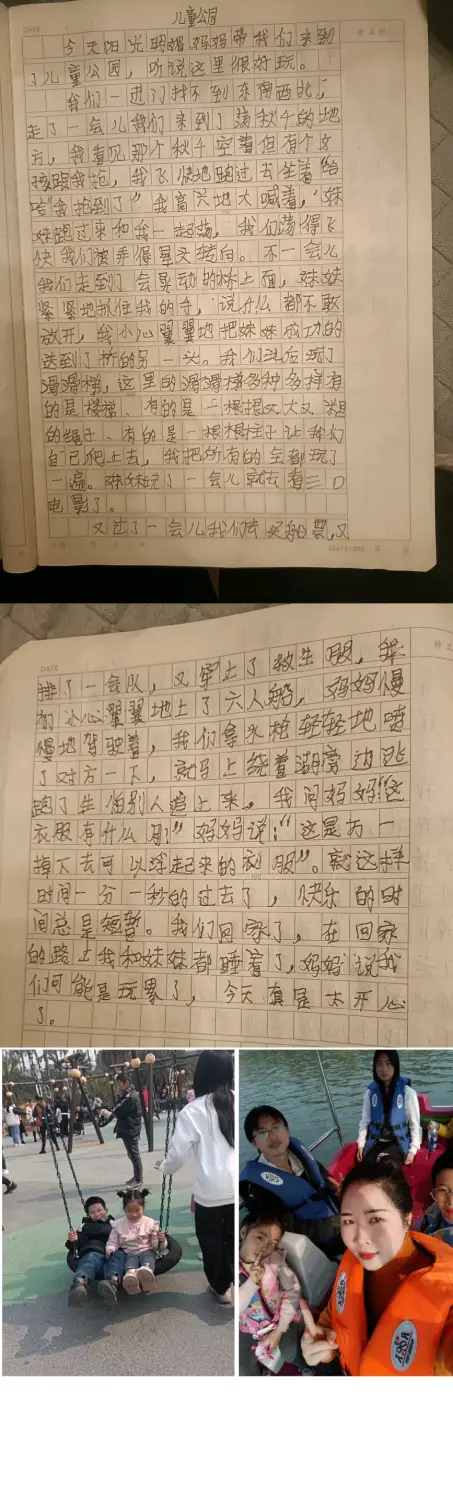 儿童公园
DATE
今天阳光明媚妈妈带我们来到
了儿童公园，听说这里很好玩。
我们一进门找不到东南西北，
走了一会儿我们来到了荡秋千的地
方，我看见那个秋千空着但有个女
孩跟我抢，我飞快地跑过去坐着“哈
哈我抢到了”我高兴地大喊着，妹
妹跑过来和我一起荡，我们荡得飞
快我们被弄得晕头转向。不一会儿
我们走到了会晃动的桥上面，妹妹
紧紧地抓住我的手，说什么都不敢
放开，我小心翼翼地把妹妹成功的
送到了桥的另一头。我们然后玩了
滑滑梯，这里的滑滑梯多种多样有
的是楼梯、有的是一根根又大又粗
的绳子、有的是一根根柱子让我们
自己爬上去，我把所有的全都玩了
一遍。妹妹玩了一会儿就去看三D
电影了。
又过了一会儿我们去买船票，又
DATE
排了一会队，又穿上了救生服，我
们小心翼翼地上了六人船，妈妈慢
慢地驾驶着，我们拿水枪轻轻地喷
了对方一下，就马上绕着湖旁边逃
跑了生怕别人追上来。我问妈妈“这
衣服有什么用”妈妈说：“这是万一
掉下去可以浮起来的衣服”。就这样
时间一分一秒的过去了，快乐的时
间总是短暂。我们回家了，在回家
的路上我和妹妹都睡着了，妈妈说我
们可能是玩累了，今天真是太开心
了。